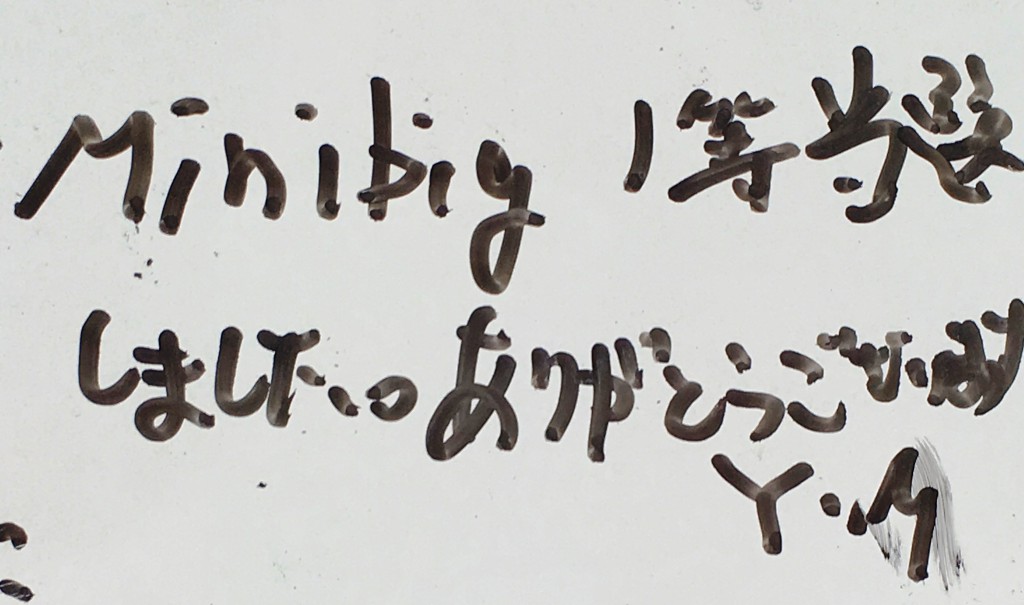 Minibig 1等当選
しました。ありがとうござい
Y.M